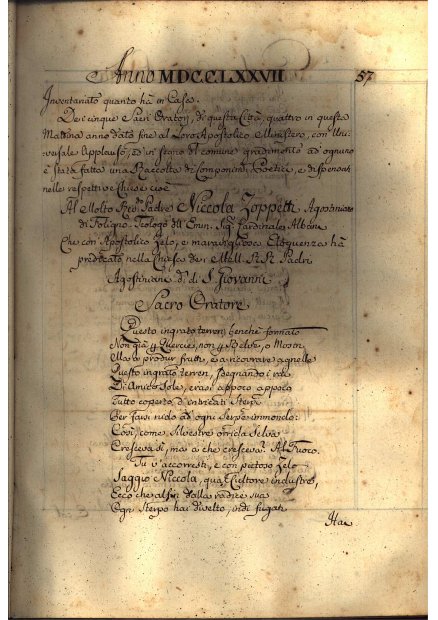 Anno MDCCLXXVII 57
Inventariato quanto hà in Casa.
Dei cinque Sacri Oratori, di questa Città, quattro in questa
Mattina anno dato fine al Loro Apostolico Ministero, con Uni-
versale Applauso, ed in segno di comune gradimento ad ognuno
è stata fatto una Raccolta di Componimti Poetici, e dispensati
nelle respettive Chiese cioè
Al Molto Revdo Padre Niccola Zoppetti Agostiniano
di Foligno, Teologo dell Emin. Sigr Cardinale Albani
Che con Apostolico Zelo, e maravigliosa Eloquenza hà
predicato nella Chiesa dei Mll. Rt. Rt. Padri
Agostiniani di S. Giovanni
Sacro Oratore
Questo ingrato terren, benchè formato
Non già per Quercie, non per Belve, o Mostri
Ma a produr frutti, e a ricovrare agnelle
Questo ingrato terren, sdegnando i rai
Di Amico Sole, erasi appoco appoco
Tutto coperto d'intricati Sterpi
Per farsi nido ad ogni Serpe immondo:
Così, come Silvestre orrida Selva
Cresceva sì, ma a che cresceva? Al Fuoco.
Tu v'accorresti, e con pietoso Zelo
Saggio Niccola, qual Cultore industre,
Ecco che alfin dalla radice sua
Ogni Sterpo hai divelto, indi fugati
Hai